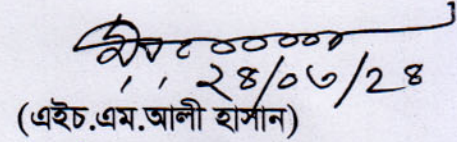 ২৪/০৬/২৪
(এইচ.এম.আলী হাসান)